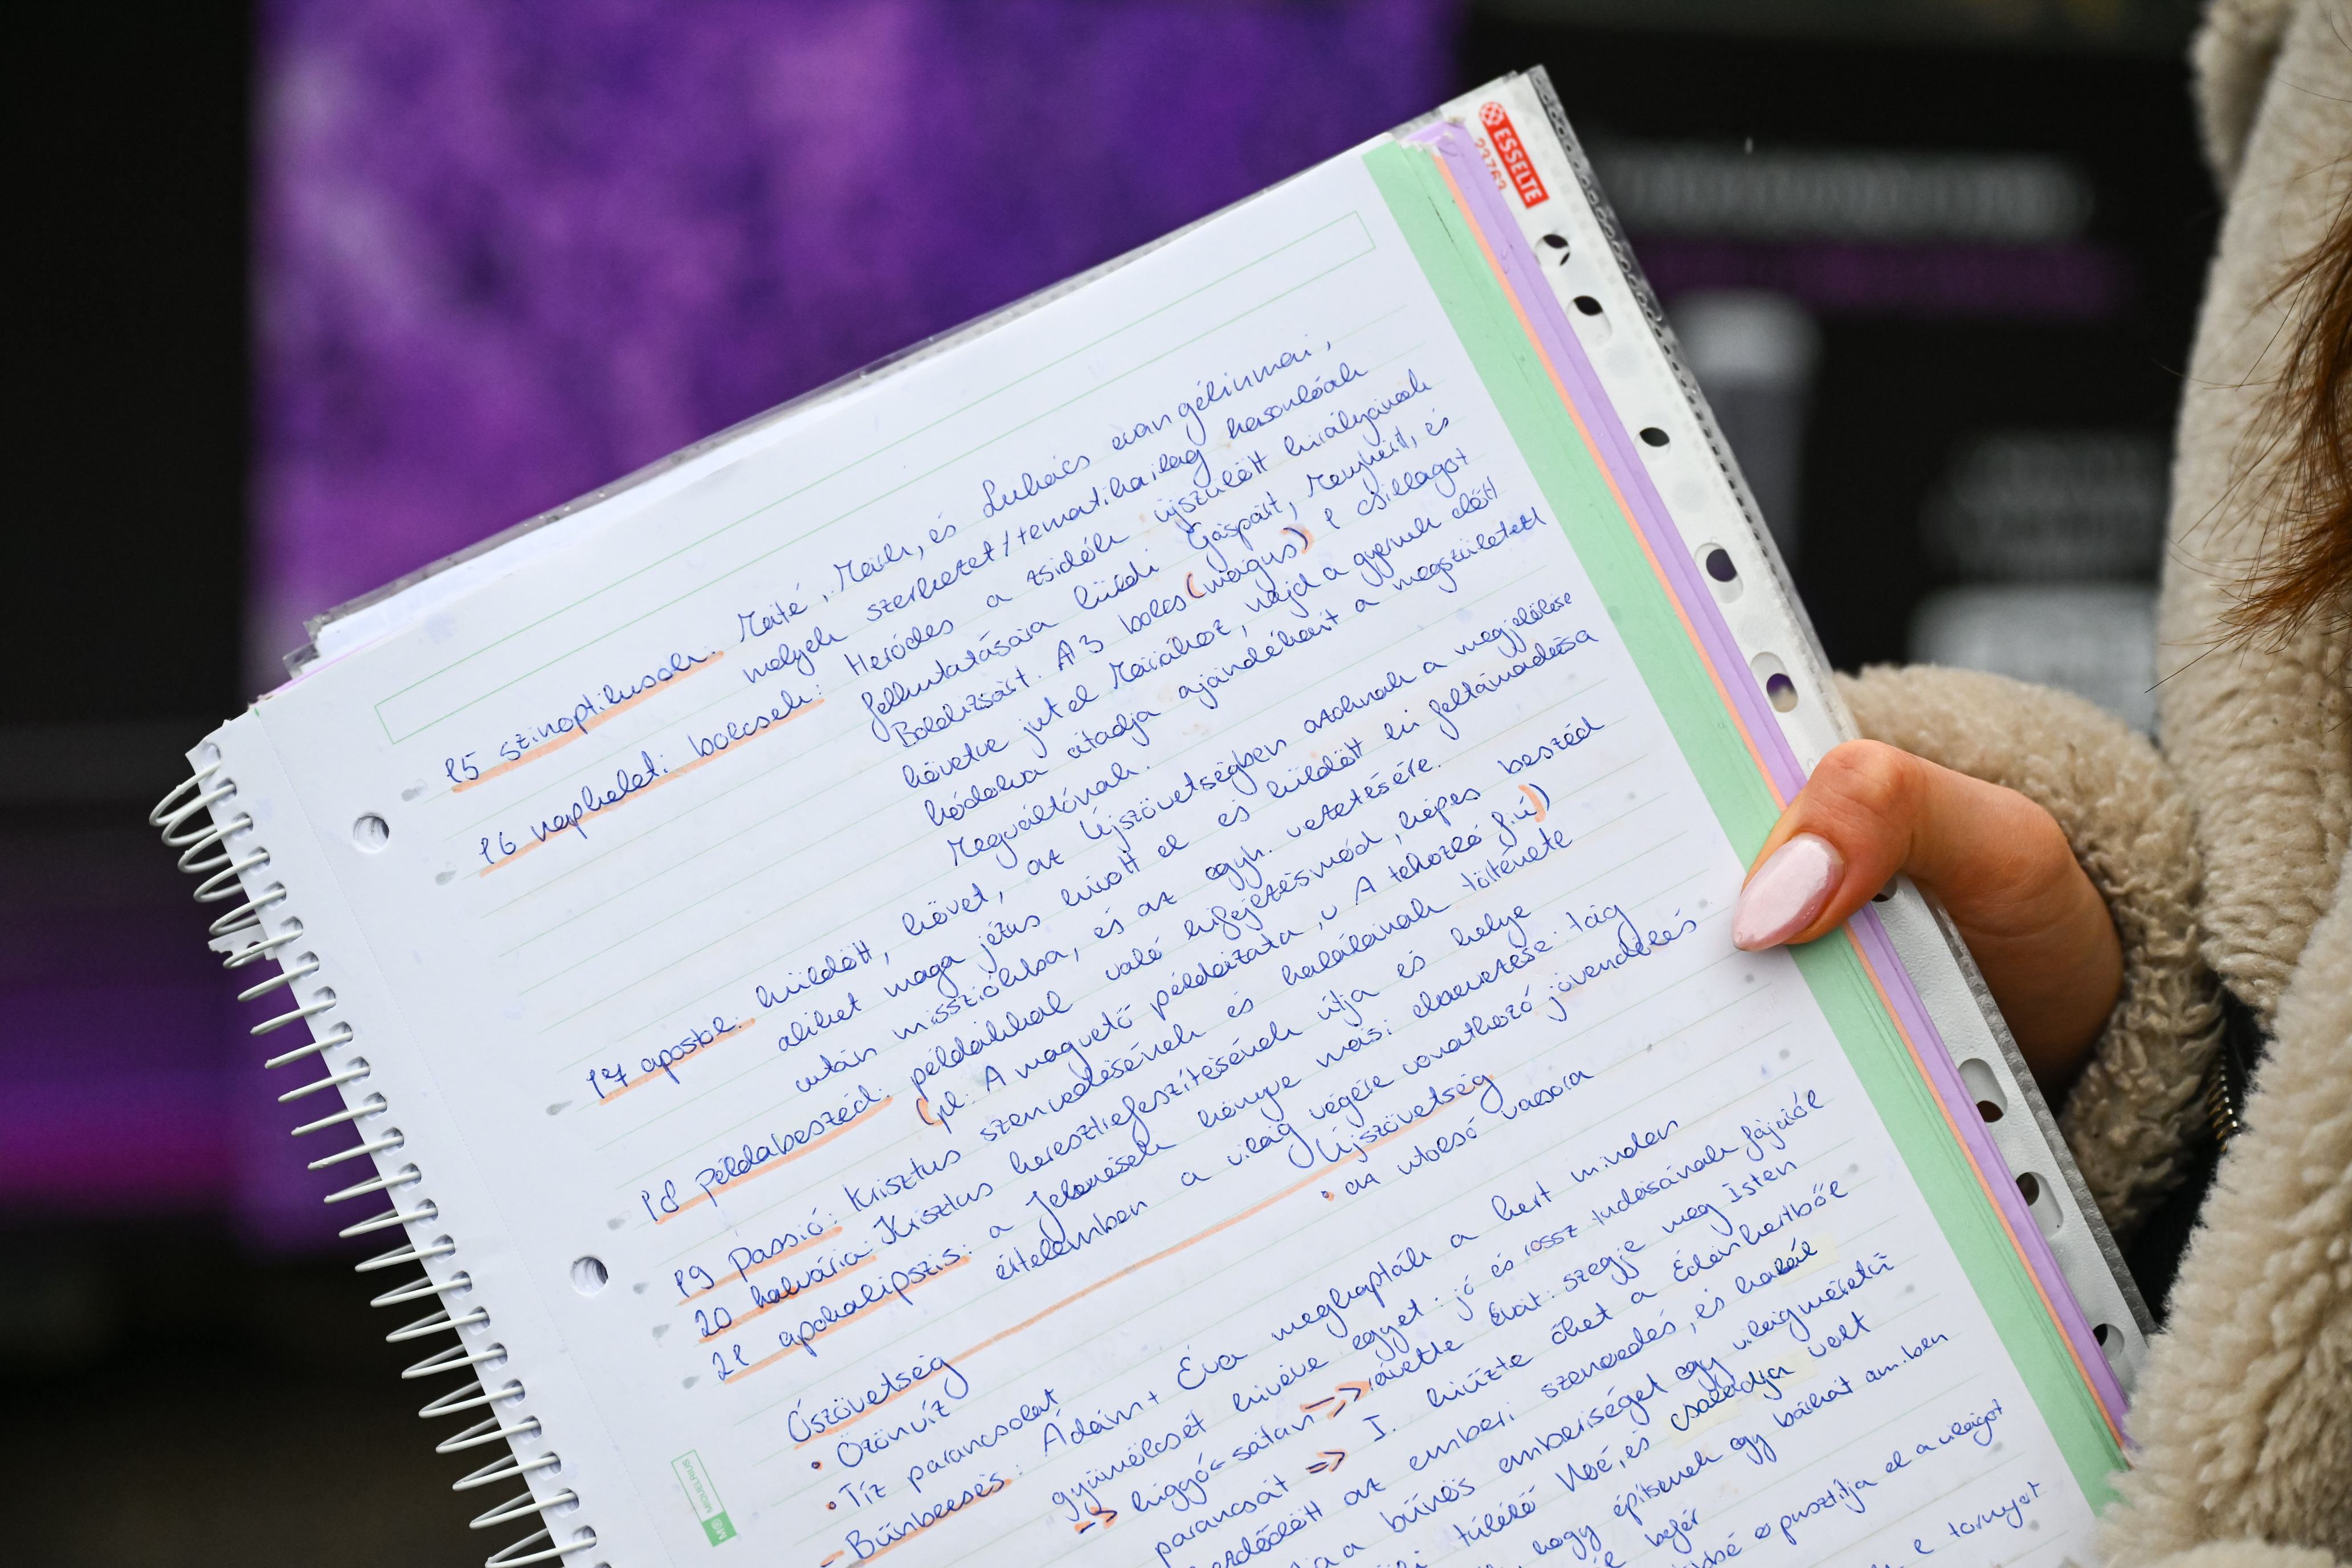 ESSELTE
23763
15 szinoptikusok: Máté, Márk, és Lukács evangéliumai,
melyek szerkezet/tematikailag hasonlóak
16 napkeleti bölcsek: Heródes a zsidók újszülött királyának
felkutatására küldi Gáspárt, Menyhért, és
Boldizsárt. A 3 bölcs (mágus) a csillagot
követve jut el Máriához, majd a gyermek előtt
hódolva átadja ajándékait a megszületett
Megváltónak.
17 apostol: küldött, követ, az Újszövetségben azoknak a megjelölése
akiket maga jézus hívott el és küldött ki feltámadása
után misszióba, és az egyh. vezetésére.
18 példabeszéd: példákkal való kifejezésmód, képes beszéd
(pl: A magvető példázata, v A tékozló fiú)
19 Passió: Krisztus szenvedésének és halálának története
20 kálvária: Krisztus keresztrefeszítésének útja és helye
21 apokalipszis: a Jelenések könyve más: elnevezése: tág
értelemben a világ végére vonatkozó jövendölés
Ószövetség Újszövetség
• Özönvíz • az utolsó vacsora
• Tíz parancsolat
- Bűnbeesés: Ádám + Éva megkapták a kert minden
gyümölcsét kivéve egyet: jó és rossz tudásának fájáról
-> kígyó = sátán => rávette Évát: szegje meg Isten
parancsát => I. kiűzte őket az Édenkertből
az emberi szenvedés, és halál
a bűnös emberiséget egy világméretű
túlélő Noé, és családja volt
hogy építsenek egy bárkát amiben
befér
pusztítja el a világot
tornyot
MIQUELRIUS